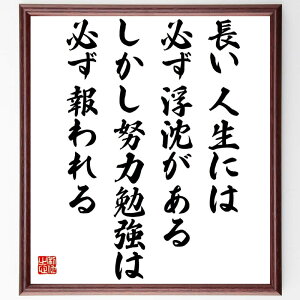 長い人生には
必ず浮沈がある
しかし努力勉強は
必ず報われる